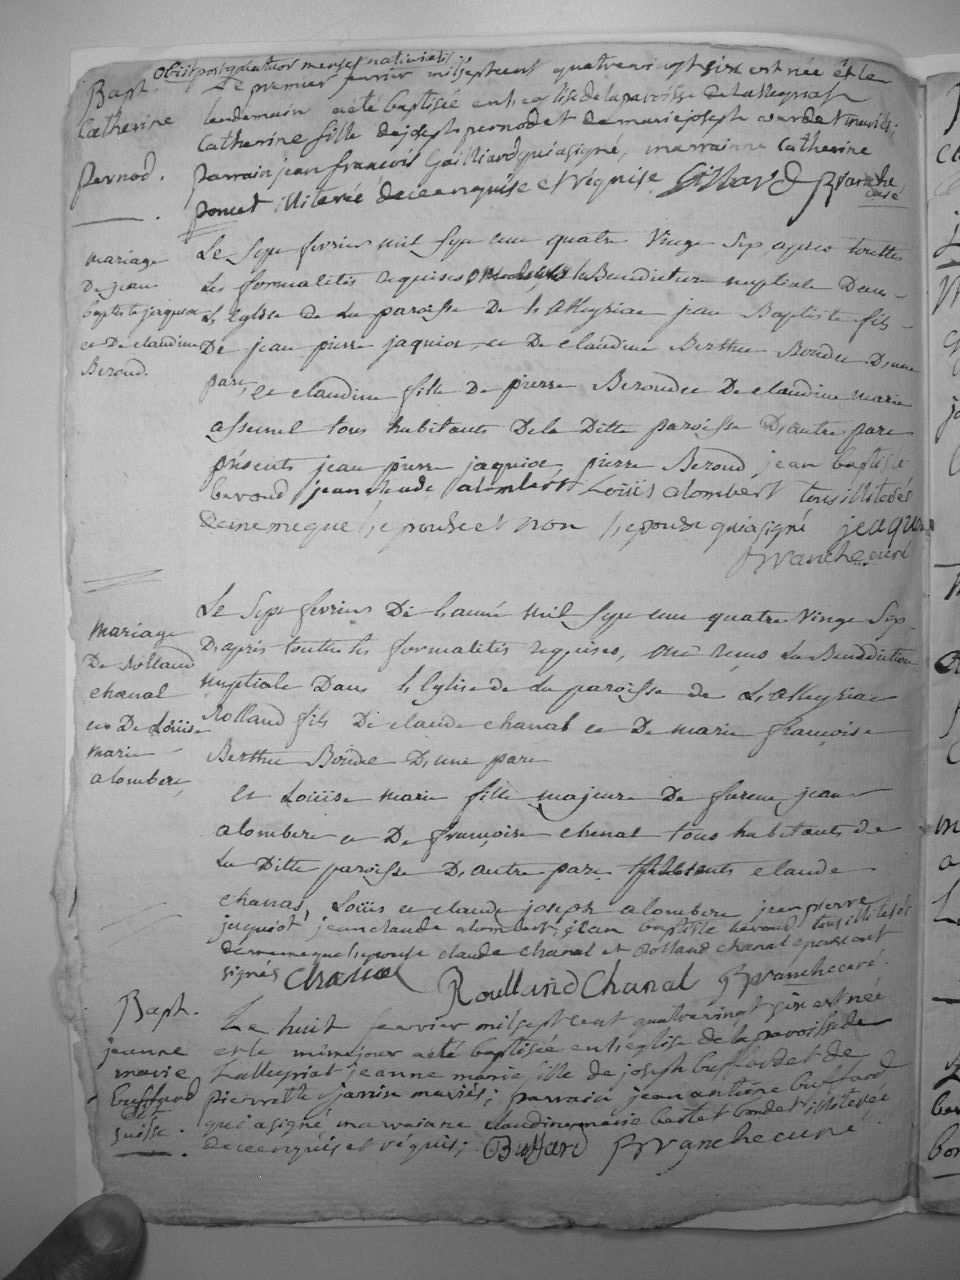 obiit post quatuor menses nativitatis
Bapt.
Catherine
pernod.
Le premier fevrier mil sept cent quatre vingt six est née et le
lendemain a été baptisée en l'eglise de la paroisse de Lalleyriat
Catherine fille de joseph pernod et de marie joseph mariés;
parrain jean françois Gailliard qui a signé, marrainne Catherine
poncet illiterée de ce enquise et réquise. Gilliard Bvanche
curé
mariage
De jean
baptiste jaquiot
et De claudine
Beroud.
Le Sept fevrier mil sept cent quatre vingt sept apres touttes
Les formalités requises ont reçus la Benediction nuptiale Dans
L'Eglise de La paroisse De Lalleyriat jean Baptiste fils
De jean pierre jaquiot et De claudine Berthet Bondet D'une
part, et claudine fille De pierre Beroud et De claudine marie
assumel tous habitants De la Ditte paroisse D'autre part
présents jean pierre jaquiot, pierre Beroud jean baptiste
beroud jean claude alombert Loüis alombert tous illiterés
de meme que l'epouse et non l'epoux qui a signé jeaquiot
Bvanche curé
mariage
De Rolland
chanal
et De Loüise
marie
alombert,
Le Sept fevrier De L'année mil sept cent quatre vingt sept
D'après touttes les formalités requises, ont reçus La Benediction
nuptiale Dans L'Eglise de La paroisse de Lalleyriat
Rolland fils De claude chanal et De marie françoise
Berthet Bondet D'une part
et Loüise marie fille majeure De jean
alombert et De françoise chanal tous habitants de
La Ditte paroisse D'autre part présents claude
chanal, Loüis et claude joseph alombert jean pierre
jaquiot jean claude alombert, jean baptiste beroud tous illiterés
de meme que l'epouse claude chanal et Rolland chanal epoux ont
signés Chanal Roulland Chanal Bvanche curé.
Bapt.
jeanne
marie
buffard
dit
suisse.
Le huit fevrier mil sept cent quatre vingt six est née
et le même jour a été baptisée en l'eglise de la paroisse de
Lalleyriat jeanne marie fille de joseph buffard et de
pierrette janin mariés; parrain jean antoine buffard
qui a signé marraine claudine marie bertet bondet illiterée
de ce enquis et réquis; Buffard Bvanche curé